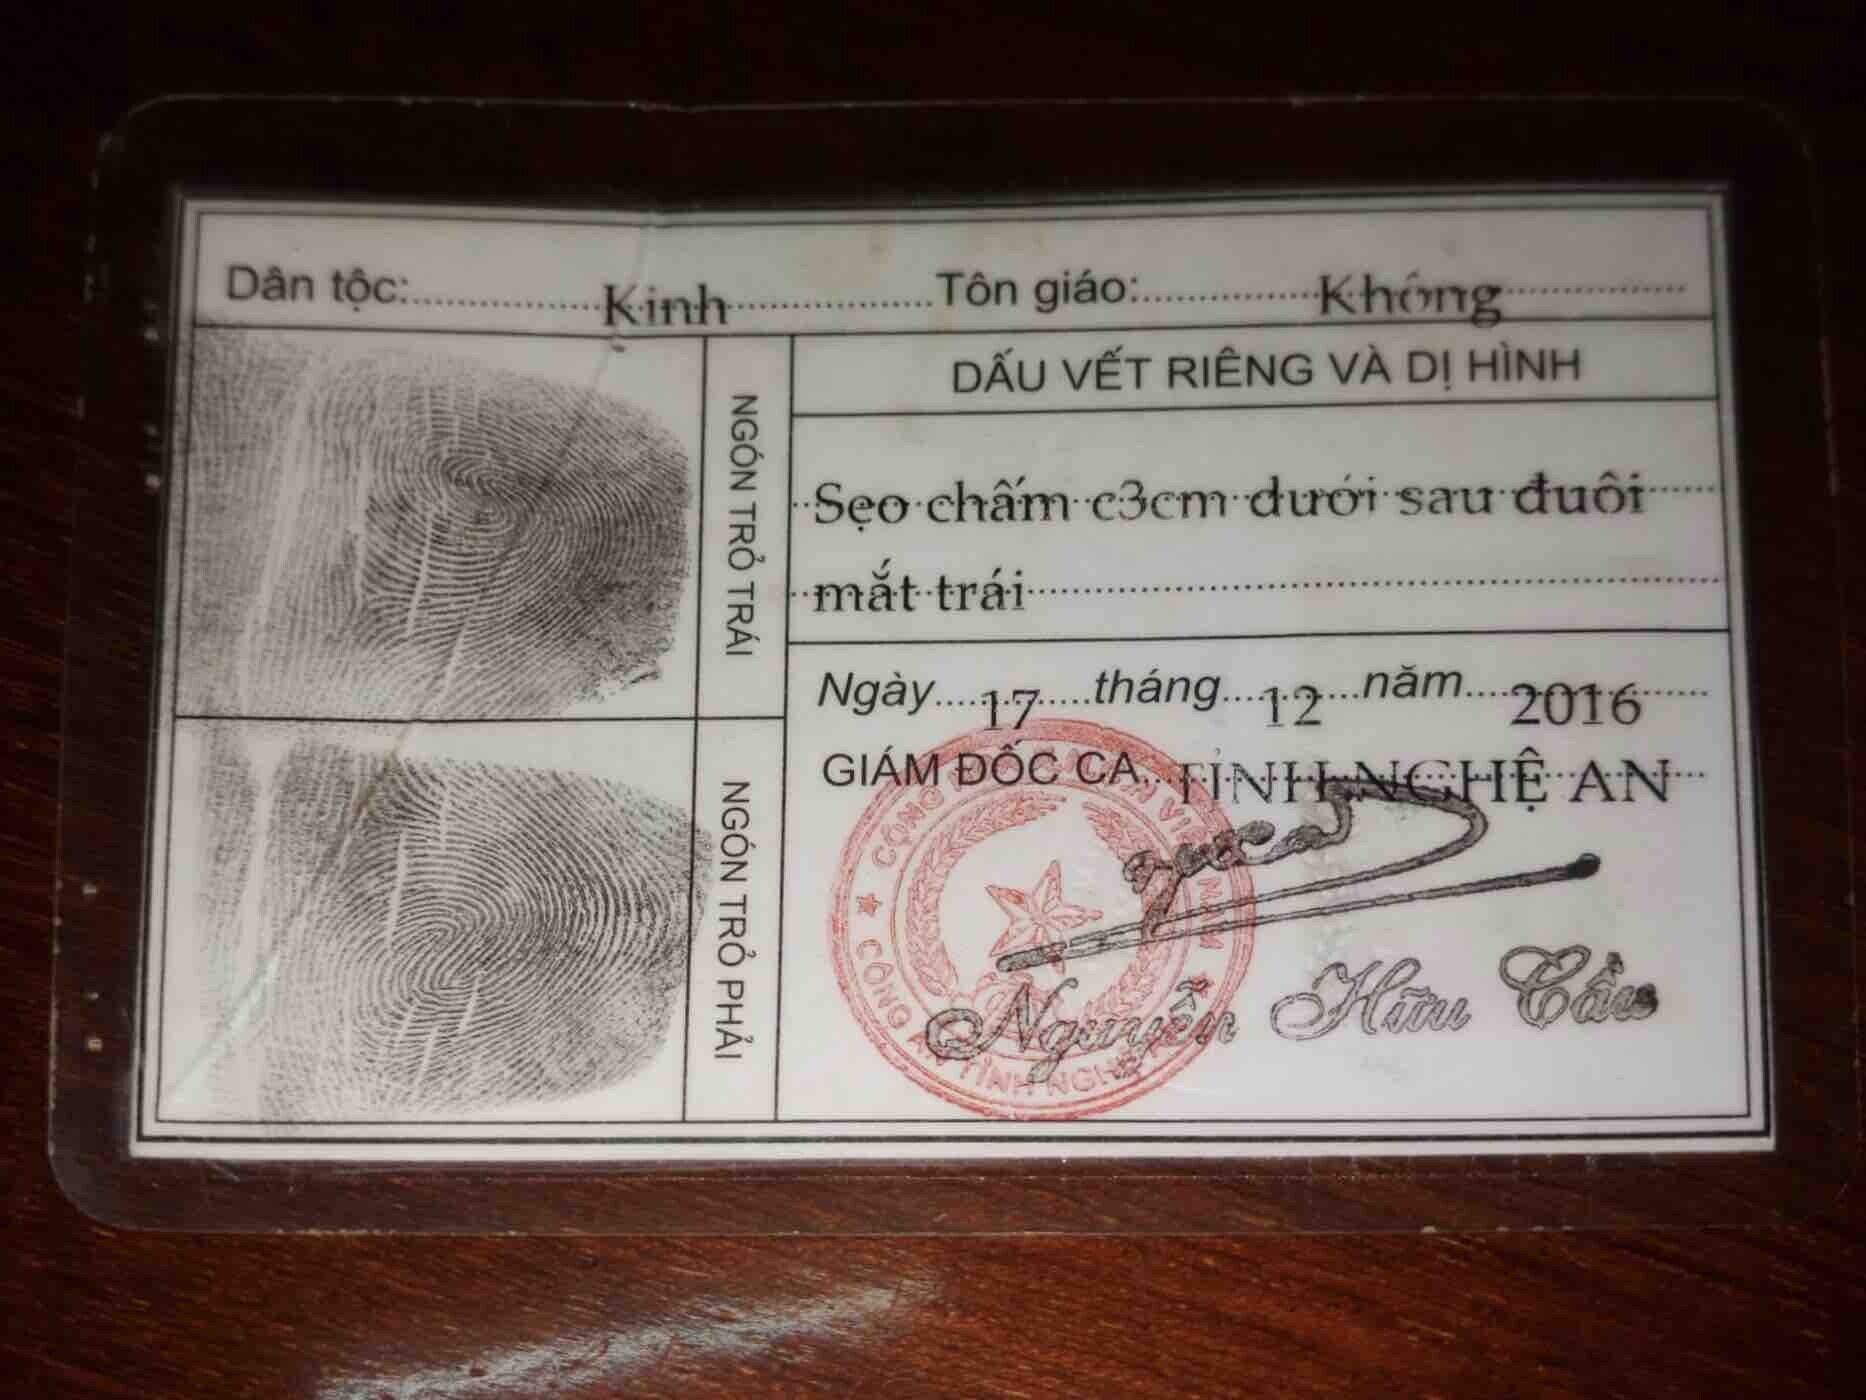 Dân tộc: Kinh Tôn giáo: Không
NGÓN TRỎ TRÁI
NGÓN TRỎ PHẢI
DẤU VẾT RIÊNG VÀ DỊ HÌNH
Sẹo chấm c3cm dưới sau đuôi
mắt trái
Ngày 17 tháng 12 năm 2016
GIÁM ĐỐC CA TỈNH NGHỆ AN
Nguyễn Hữu Cầu
CÔNG VIỆT NAM
CÔNG AN TỈNH NGHỆ